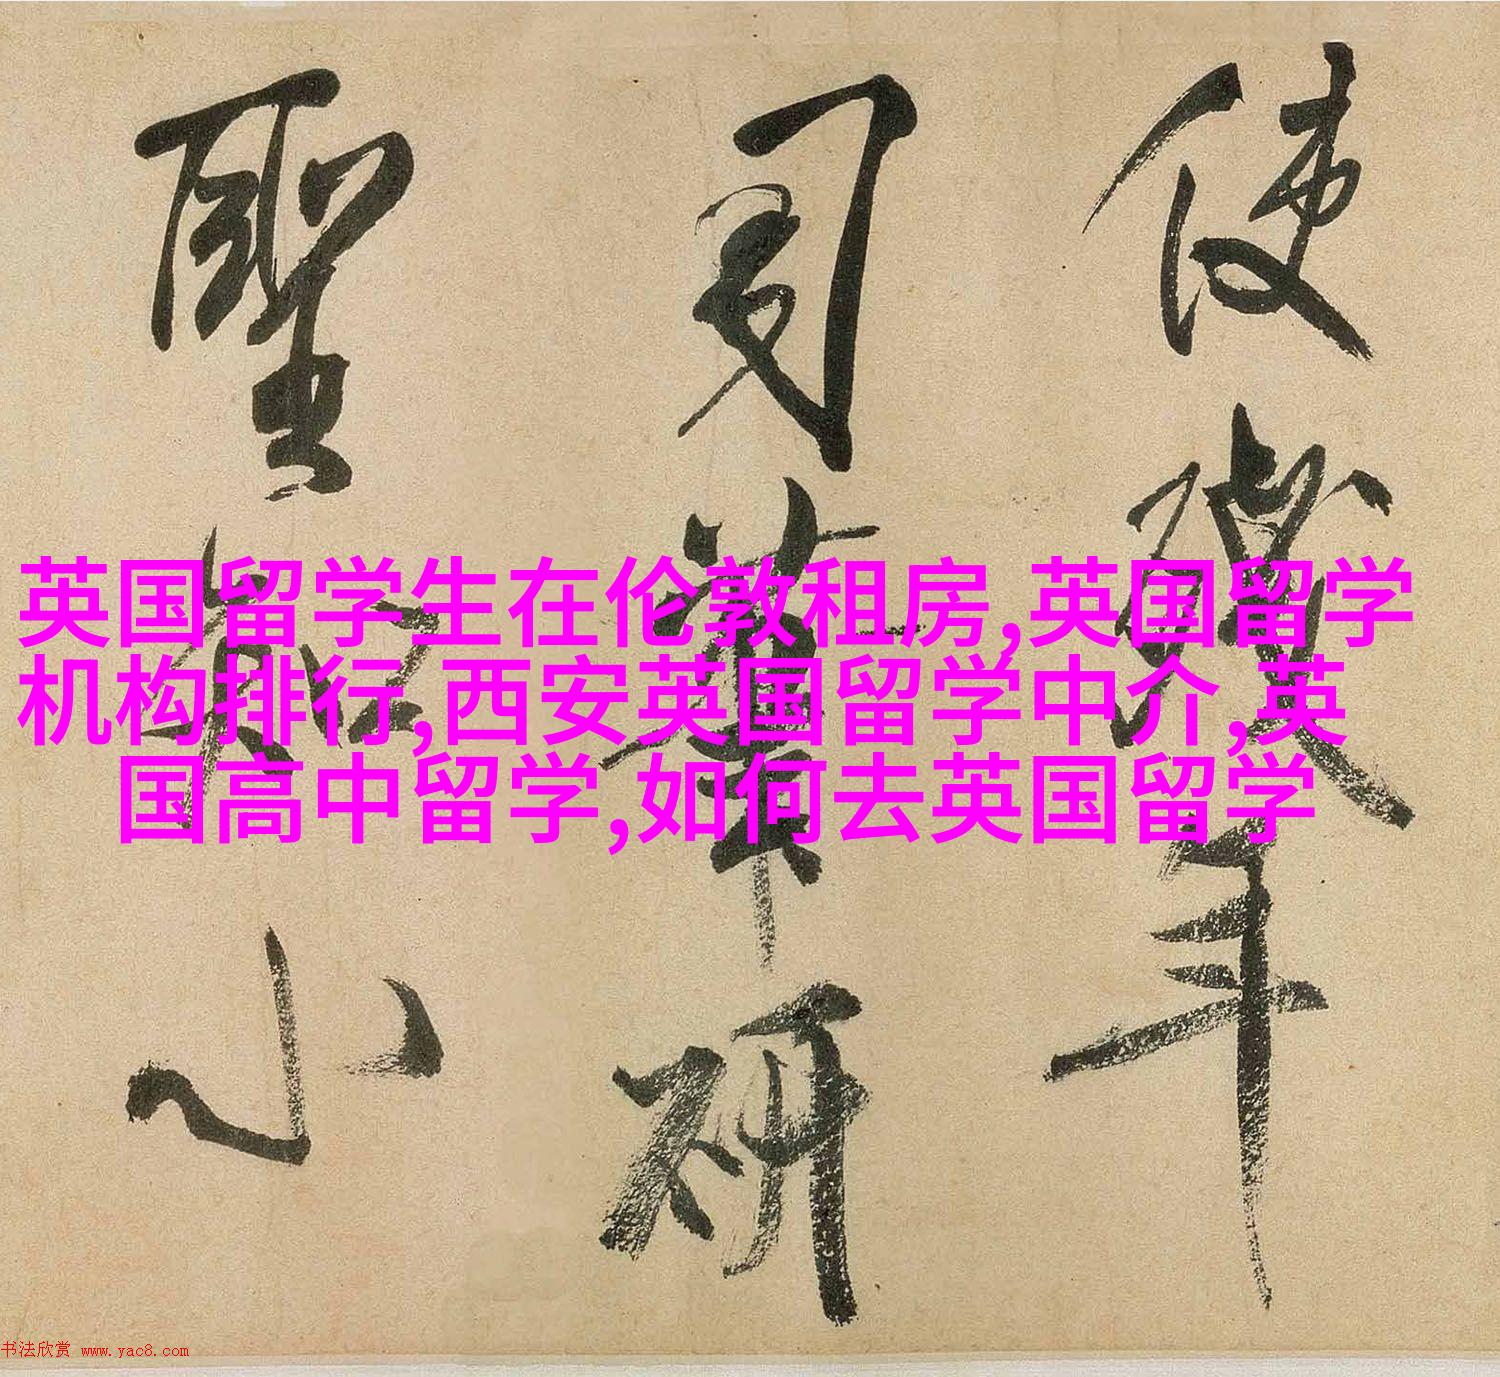 使殘年
司筆研
聖知小
英国留学生在伦敦租房,英国留学
机构排行,西安英国留学中介,英
国高中留学,如何去英国留学
书法欣赏 www.yac8.com